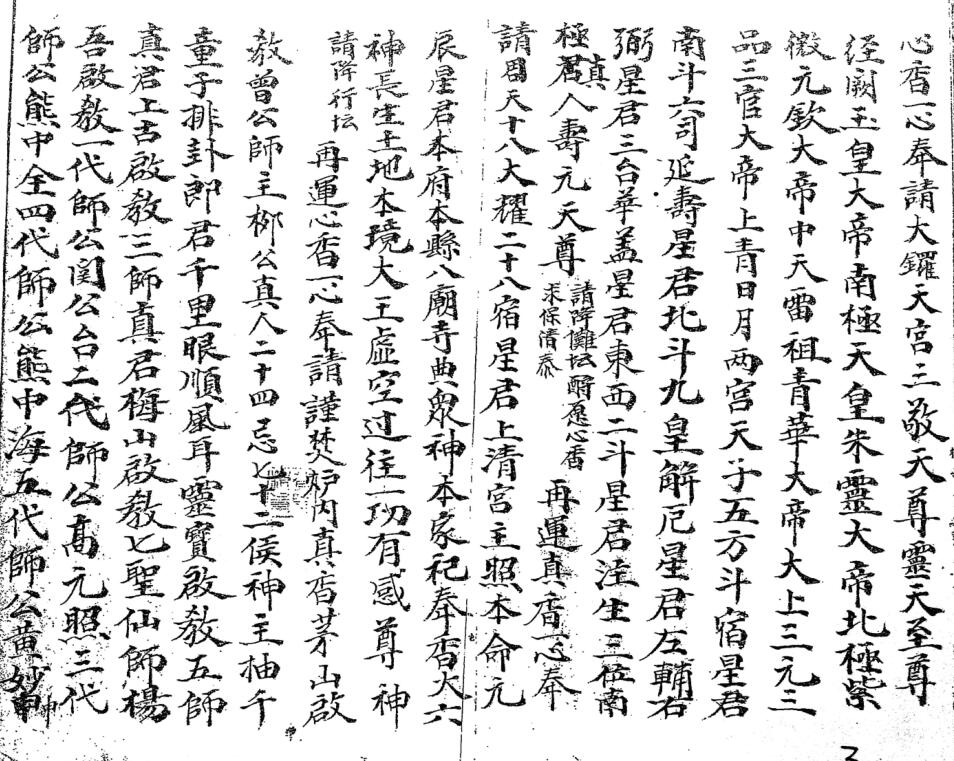 心香一心奉請大羅天宮三敬天尊靈天至尊
経闕玉皇大帝南極天皇朱靈大帝北極紫
微元欽大帝中天雷祖青華大帝大上三元三
品三官大帝上青日月两宮天子五方斗宿星君
南斗六司延壽星君北斗九皇解厄星君左輔右
弼星君三台華盖星君東西二斗星君注生三位南
極真人壽元天尊請降儺坛酧愿心香求保清泰再運真香一心奉
請周天十八大耀二十八宿星君上清宮主照本命元
辰星君本府本縣八廟寺典眾神本家祀奉香火六
神長生土地本境大王虛空过往一切有感尊神
請降行坛再運心香一心奉請謹焚炉内真香茅山啟
教曾公師主柳公真人二十四忌七十二侯神主抽千
童子排卦郎君千里眼順風耳靈寶啟教五師
真君上古啟教三師真君梅山啟教七聖仙師楊
吾啟教一代師公闵公台二代師公髙元照三代
師公熊中全四代師公熊中海五代師公黄妙中